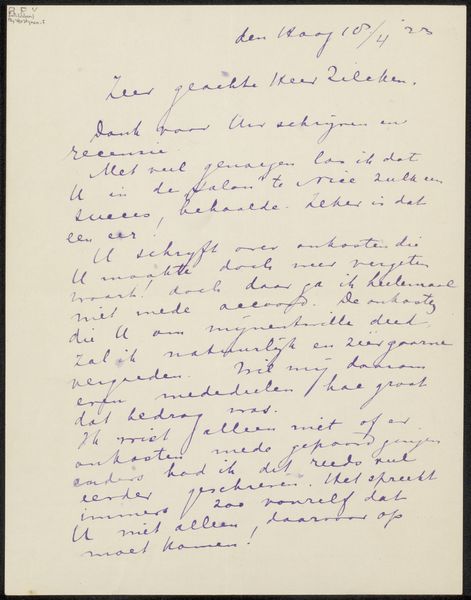 den Haag 18/4 '23
Zeer geachte Heer Zilcken.
Dank voor Uw schrijven en
recensie.
Met veel genoegen las ik dat
U in de Salon te Nice zulk een
succes, behaalde. Zeker is dat
een eer!
U schrijft over onkosten die
U maakte doch weer vergeten
waart! doch daar ga ik heelemaal
niet mede accoord. De onkosten
die U om mijnentwille deed
zal ik natuurlijk en zéér gaarne
vergoeden. Wil mij daarom
even mededeelen hoe groot
dat bedrag was.
Ik wist alleen niet of er
onkosten mede gepaard gingen
anders had ik dit reeds veel
eerder geschreven. Het spreekt
immers zoo vanzelf dat
U niet alleen, daarvoor op
moet komen!